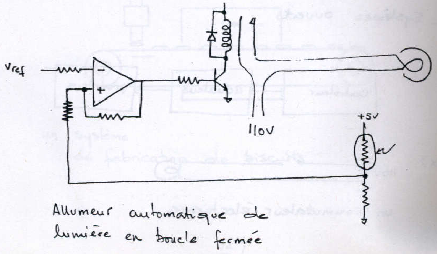 Vref
-
+
110V
+5V
Allumeur automatique de
lumière en boucle fermée